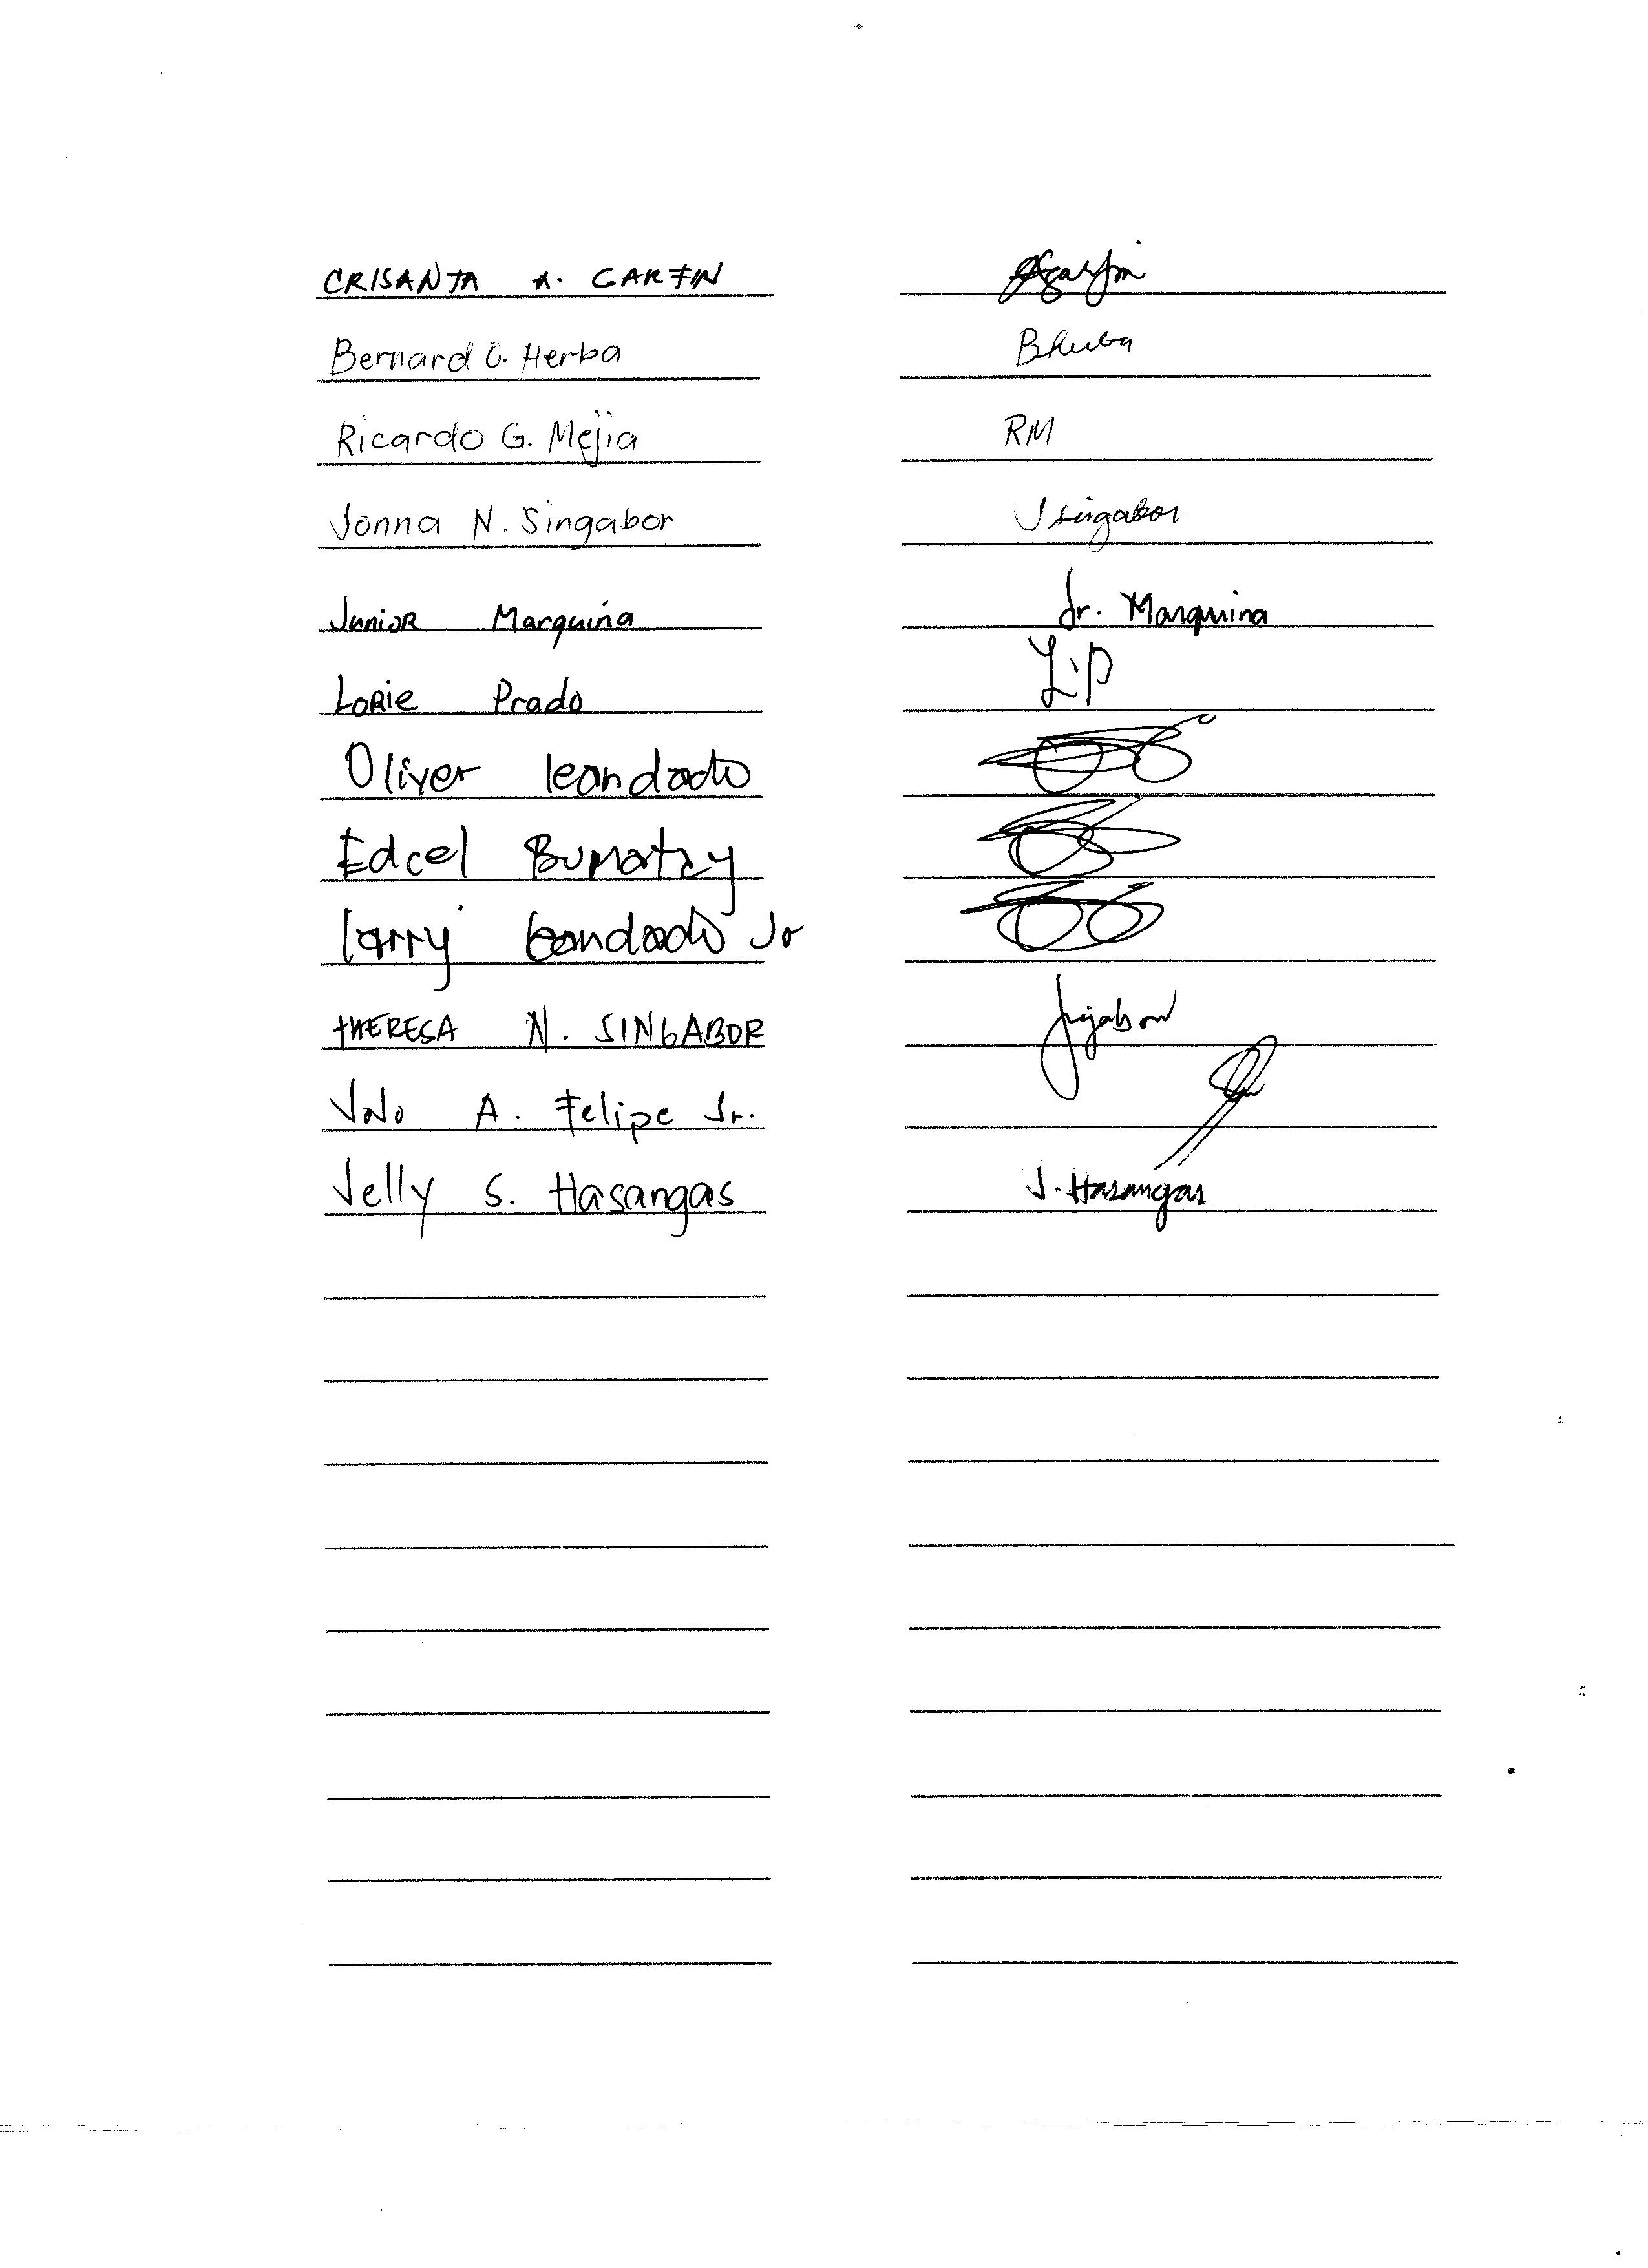 CRISANTA A. GARFIN
Bernard O. Herba Bherba
Ricardo G. Mejia RM
Jonna N. Singabor Jsingabor
Junior Marquina Jr. Marquina
Lorie Prado L.P
Oliver leandado
Edcel Bumatay
larry leandado Jr
THERESA N. SINGABOR
A. Felipe Jr.
Jelly S. Hasangas J. Hasangas